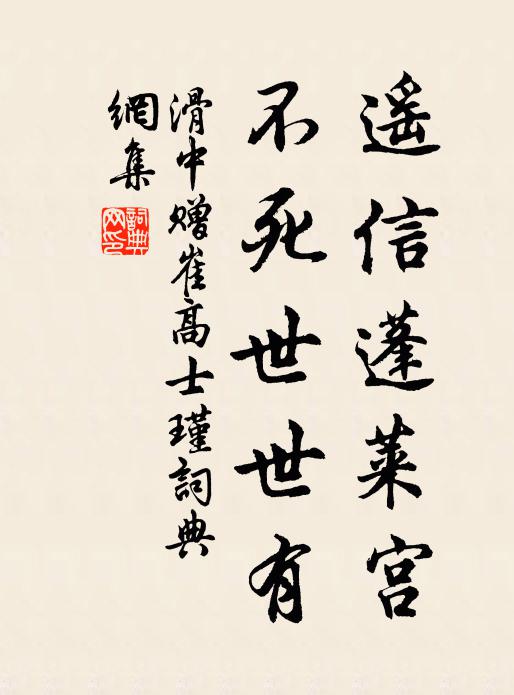 遥信蓬莱宫
不死世世有
滑中赠崔高士瑾詞典
網集
詞典
网印